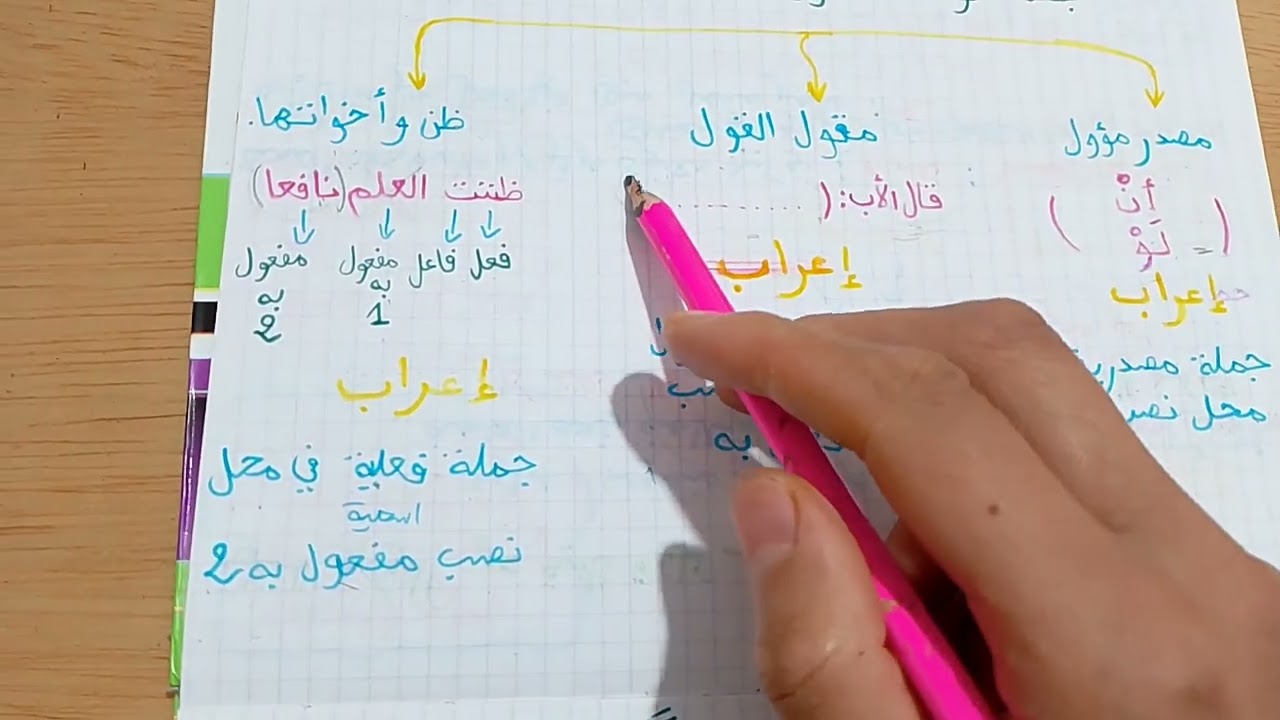 مصدر مؤول
( أنْ
= لَوْ )
إعراب
جملة
محل
مقول القول
قال الأب: ( ..........
إعراب
به
ظن وأخواتها.
ظننت العلم (نافعا)
فعل فاعل مفعول به 1 مفعول به 2
إعراب
جملة فعلية في محل
اسمية
نصب مفعول به 2